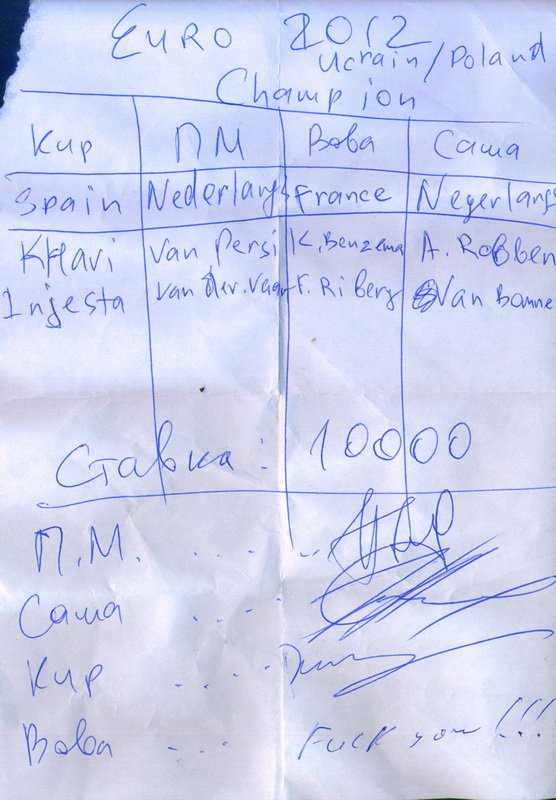 EURO 2012
Ucrain/Poland
Champion
Кир ПМ Вова Саша
Spain Nederlangs France Negerlangs
KHavi Van Persi K. Benzema A. Robben
Injesta van der. Vaar F. Riberg Van Bomme
Ставка: 10000
П.М. . . . . . .
Саша . . . .
Кир . . . .
Вова . . . Fuck you!!!